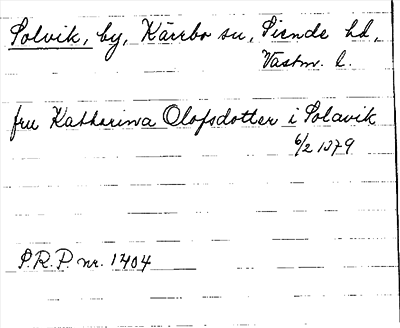 Solvik, by, Kärrbo sn, Siende hd,
Västm. l.
fru Katharina Olofsdotter i Solavik
6/2 1379
P.R.P. nr. 1404